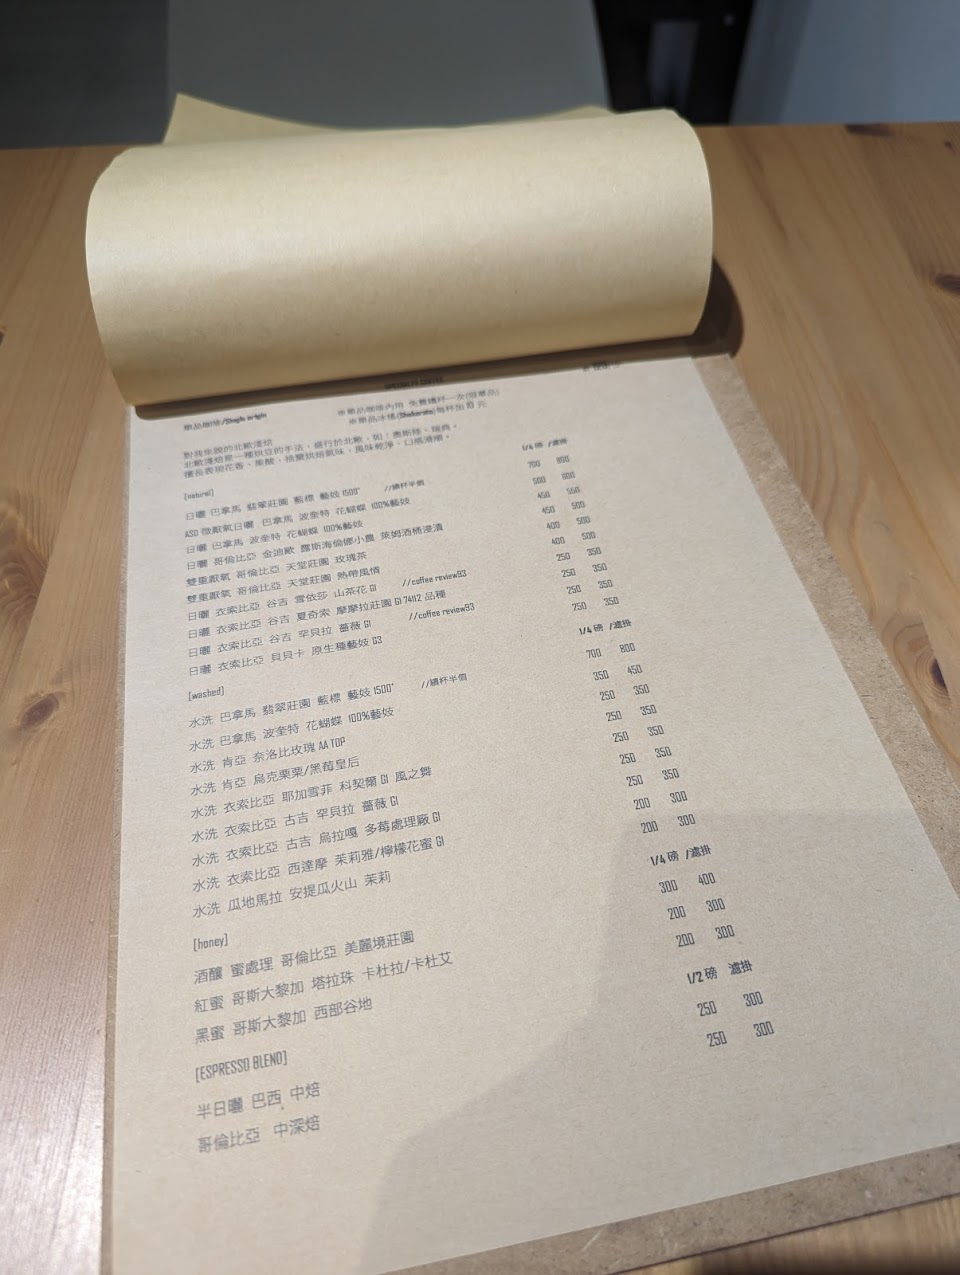 SPECIALTY COFFEE
單品咖啡/Single origin
※單品咖啡內用 免費續杯一次(限單品)
※單品冰搖(Shakerato)每杯加 10 元
對我來說的北歐淺焙
北歐淺焙是一種烘豆的手法，盛行於北歐，如：奧斯陸、瑞典。
擅長表現花香、果酸、揚棄烘焙氣味，風味乾淨、口感滑順。
[natural] 1/4 磅 /濾掛
日曬 巴拿馬 翡翠莊園 藍標 藝妓 1500" //續杯半價 700 800
ASD 微厭氧日曬 巴拿馬 波奎特 花蝴蝶 100%藝妓 500 600
日曬 巴拿馬 波奎特 花蝴蝶 100%藝妓 450 550
日曬 哥倫比亞 金迪歐 露斯海倫娜小農 萊姆酒桶浸漬 450 500
雙重厭氧 哥倫比亞 天堂莊園 玫瑰茶 400 500
雙重厭氧 哥倫比亞 天堂莊園 熱帶風情 400 500
日曬 衣索比亞 谷吉 雪依莎 山茶花 G1 250 350
日曬 衣索比亞 谷吉 夏奇索 摩摩拉莊園 G1 74112 品種 //coffee review93 250 350
日曬 衣索比亞 谷吉 罕貝拉 薔薇 G1 //coffee review93 250 350
日曬 衣索比亞 貝貝卡 原生種藝妓 G3 250 350
[washed] 1/4 磅 /濾掛
水洗 巴拿馬 翡翠莊園 藍標 藝妓 1500" //續杯半價 700 800
水洗 巴拿馬 波奎特 花蝴蝶 100%藝妓 350 450
水洗 肯亞 奈洛比玫瑰 AA TOP 250 350
水洗 肯亞 烏克栗栗/黑莓皇后 250 350
水洗 衣索比亞 耶加雪菲 科契爾 G1 風之舞 250 350
水洗 衣索比亞 古吉 罕貝拉 薔薇 G1 250 350
水洗 衣索比亞 古吉 烏拉嘎 多莓處理廠 G1 250 350
水洗 衣索比亞 西達摩 茉莉雅/檸檬花蜜 G1 200 300
水洗 瓜地馬拉 安提瓜火山 茉莉 200 300
[honey] 1/4 磅 /濾掛
酒釀 蜜處理 哥倫比亞 美麗境莊園 300 400
紅蜜 哥斯大黎加 塔拉珠 卡杜拉/卡杜艾 200 300
黑蜜 哥斯大黎加 西部谷地 200 300
[ESPRESSO BLEND] 1/2 磅 濾掛
半日曬 巴西 中焙 250 300
哥倫比亞 中深焙 250 300